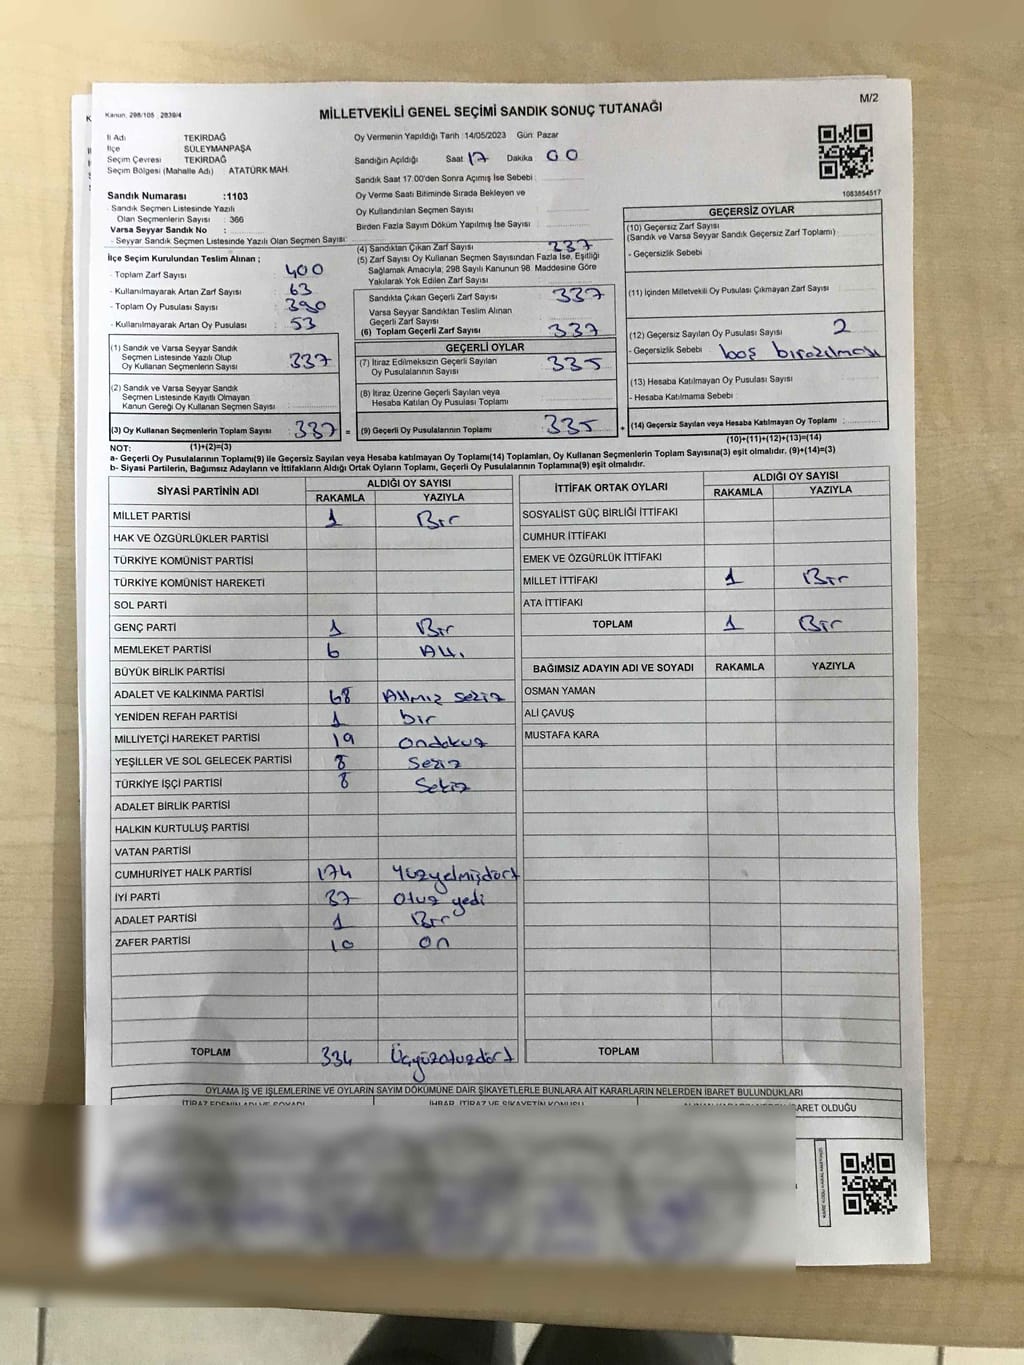 M/2
Kanun. 298/105 , 2839/4
MİLLETVEKİLİ GENEL SEÇİMİ SANDIK SONUÇ TUTANAĞI
İl Adı TEKİRDAĞ
İlçe SÜLEYMANPAŞA
Seçim Çevresi TEKİRDAĞ
Seçim Bölgesi (Mahalle Adı) : ATATÜRK MAH.
Oy Vermenin Yapıldığı Tarih :14/05/2023 Gün: Pazar
Sandığın Açıldığı Saat 17 Dakika 00
Sandık Saat 17.00'den Sonra Açımış İse Sebebi :
Oy Verme Saati Bitiminde Sırada Bekleyen ve
Oy Kullandırılan Seçmen Sayısı
Birden Fazla Sayım Döküm Yapılmış İse Sayısı :
1083854517
Sandık Numarası :1103
- Sandık Seçmen Listesinde Yazılı
Olan Seçmenlerin Sayısı : 366
Varsa Seyyar Sandık No :
- Seyyar Sandık Seçmen Listesinde Yazılı Olan Seçmen Sayısı:
İlçe Seçim Kurulundan Teslim Alınan ;
- Toplam Zarf Sayısı 400
- Kullanılmayarak Artan Zarf Sayısı 63
- Toplam Oy Pusulası Sayısı 390
- Kullanılmayarak Artan Oy Pusulası 53
(1) Sandık ve Varsa Seyyar Sandık
Seçmen Listesinde Yazılı Olup
Oy Kullanan Seçmenlerin Sayısı 337
(2) Sandık ve Varsa Seyyar Sandık
Seçmen Listesinde Kayıtlı Olmayan
Kanun Gereği Oy Kullanan Seçmen Sayısı
(3) Oy Kullanan Seçmenlerin Toplam Sayısı : 337 =
(4) Sandıktan Çıkan Zarf Sayısı 337
(5) Zarf Sayısı Oy Kullanan Seçmen Sayısından Fazla İse, Eşitliği
Sağlamak Amacıyla; 298 Sayılı Kanunun 98. Maddesine Göre
Yakılarak Yok Edilen Zarf Sayısı
Sandıkta Çıkan Geçerli Zarf Sayısı 337
Varsa Seyyar Sandıktan Teslim Alınan
Geçerli Zarf Sayısı
(6) Toplam Geçerli Zarf Sayısı 337
GEÇERLİ OYLAR
(7) İtiraz Edilmeksizin Geçerli Sayılan
Oy Pusulalarının Sayısı 335
(8) İtiraz Üzerine Geçerli Sayılan veya
Hesaba Katılan Oy Pusulası Toplamı
(9) Geçerli Oy Pusulalarının Toplamı 335 +
GEÇERSİZ OYLAR
(10) Geçersiz Zarf Sayısı
(Sandık ve Varsa Seyyar Sandık Geçersiz Zarf Toplamı)
- Geçersizlik Sebebi
(11) İçinden Milletvekili Oy Pusulası Çıkmayan Zarf Sayısı
(12) Geçersiz Sayılan Oy Pusulası Sayısı 2
- Geçersizlik Sebebi boş bırakılması
(13) Hesaba Katılmayan Oy Pusulası Sayısı
- Hesaba Katılmama Sebebi
(14) Geçersiz Sayılan veya Hesaba Katılmayan Oy Toplamı
(10)+(11)+(12)+(13)=(14)
NOT: (1)+(2)=(3)
a- Geçerli Oy Pusulalarının Toplamı(9) ile Geçersiz Sayılan veya Hesaba katılmayan Oy Toplamı(14) Toplamları, Oy Kullanan Seçmenlerin Toplam Sayısına(3) eşit olmalıdır. (9)+(14)=(3)
b- Siyasi Partilerin, Bağımsız Adayların ve İttifakların Aldığı Ortak Oyların Toplamı, Geçerli Oy Pusulalarının Toplamına(9) eşit olmalıdır.
SİYASİ PARTİNİN ADI ALDIĞI OY SAYISI
RAKAMLA YAZIYLA
MİLLET PARTİSİ 1 Bir
HAK VE ÖZGÜRLÜKLER PARTİSİ
TÜRKİYE KOMÜNİST PARTİSİ
TÜRKİYE KOMÜNİST HAREKETİ
SOL PARTİ
GENÇ PARTİ 1 Bir
MEMLEKET PARTİSİ 6 Altı
BÜYÜK BİRLİK PARTİSİ
ADALET VE KALKINMA PARTİSİ 68 Altmış sekiz
YENİDEN REFAH PARTİSİ 1 bir
MİLLİYETÇİ HAREKET PARTİSİ 19 ondokuz
YEŞİLLER VE SOL GELECEK PARTİSİ 8 Sekiz
TÜRKİYE İŞÇİ PARTİSİ 8 Sekiz
ADALET BİRLİK PARTİSİ
HALKIN KURTULUŞ PARTİSİ
VATAN PARTİSİ
CUMHURİYET HALK PARTİSİ 174 Yüzyetmişdört
İYİ PARTİ 37 Otuz yedi
ADALET PARTİSİ 1 Bir
ZAFER PARTİSİ 10 on
TOPLAM 334 Üçyüzotuzdört
İTTİFAK ORTAK OYLARI ALDIĞI OY SAYISI
RAKAMLA YAZIYLA
SOSYALİST GÜÇ BİRLİĞİ İTTİFAKI
CUMHUR İTTİFAKI
EMEK VE ÖZGÜRLÜK İTTİFAKI
MİLLET İTTİFAKI 1 Bir
ATA İTTİFAKI
TOPLAM 1 Bir
BAĞIMSIZ ADAYIN ADI VE SOYADI RAKAMLA YAZIYLA
OSMAN YAMAN
ALİ ÇAVUŞ
MUSTAFA KARA
TOPLAM
OYLAMA İŞ VE İŞLEMLERİNE VE OYLARIN SAYIM DÖKÜMÜNE DAİR ŞİKAYETLERLE BUNLARA AİT KARARLARIN NELERDEN İBARET BULUNDUKLARI
İTİRAZ EDENİN ADI VE SOYADI İHBAR, İTİRAZ VE ŞİKAYETİN KONUSU ALINAN KARARIN NEDEN İBARET OLDUĞU